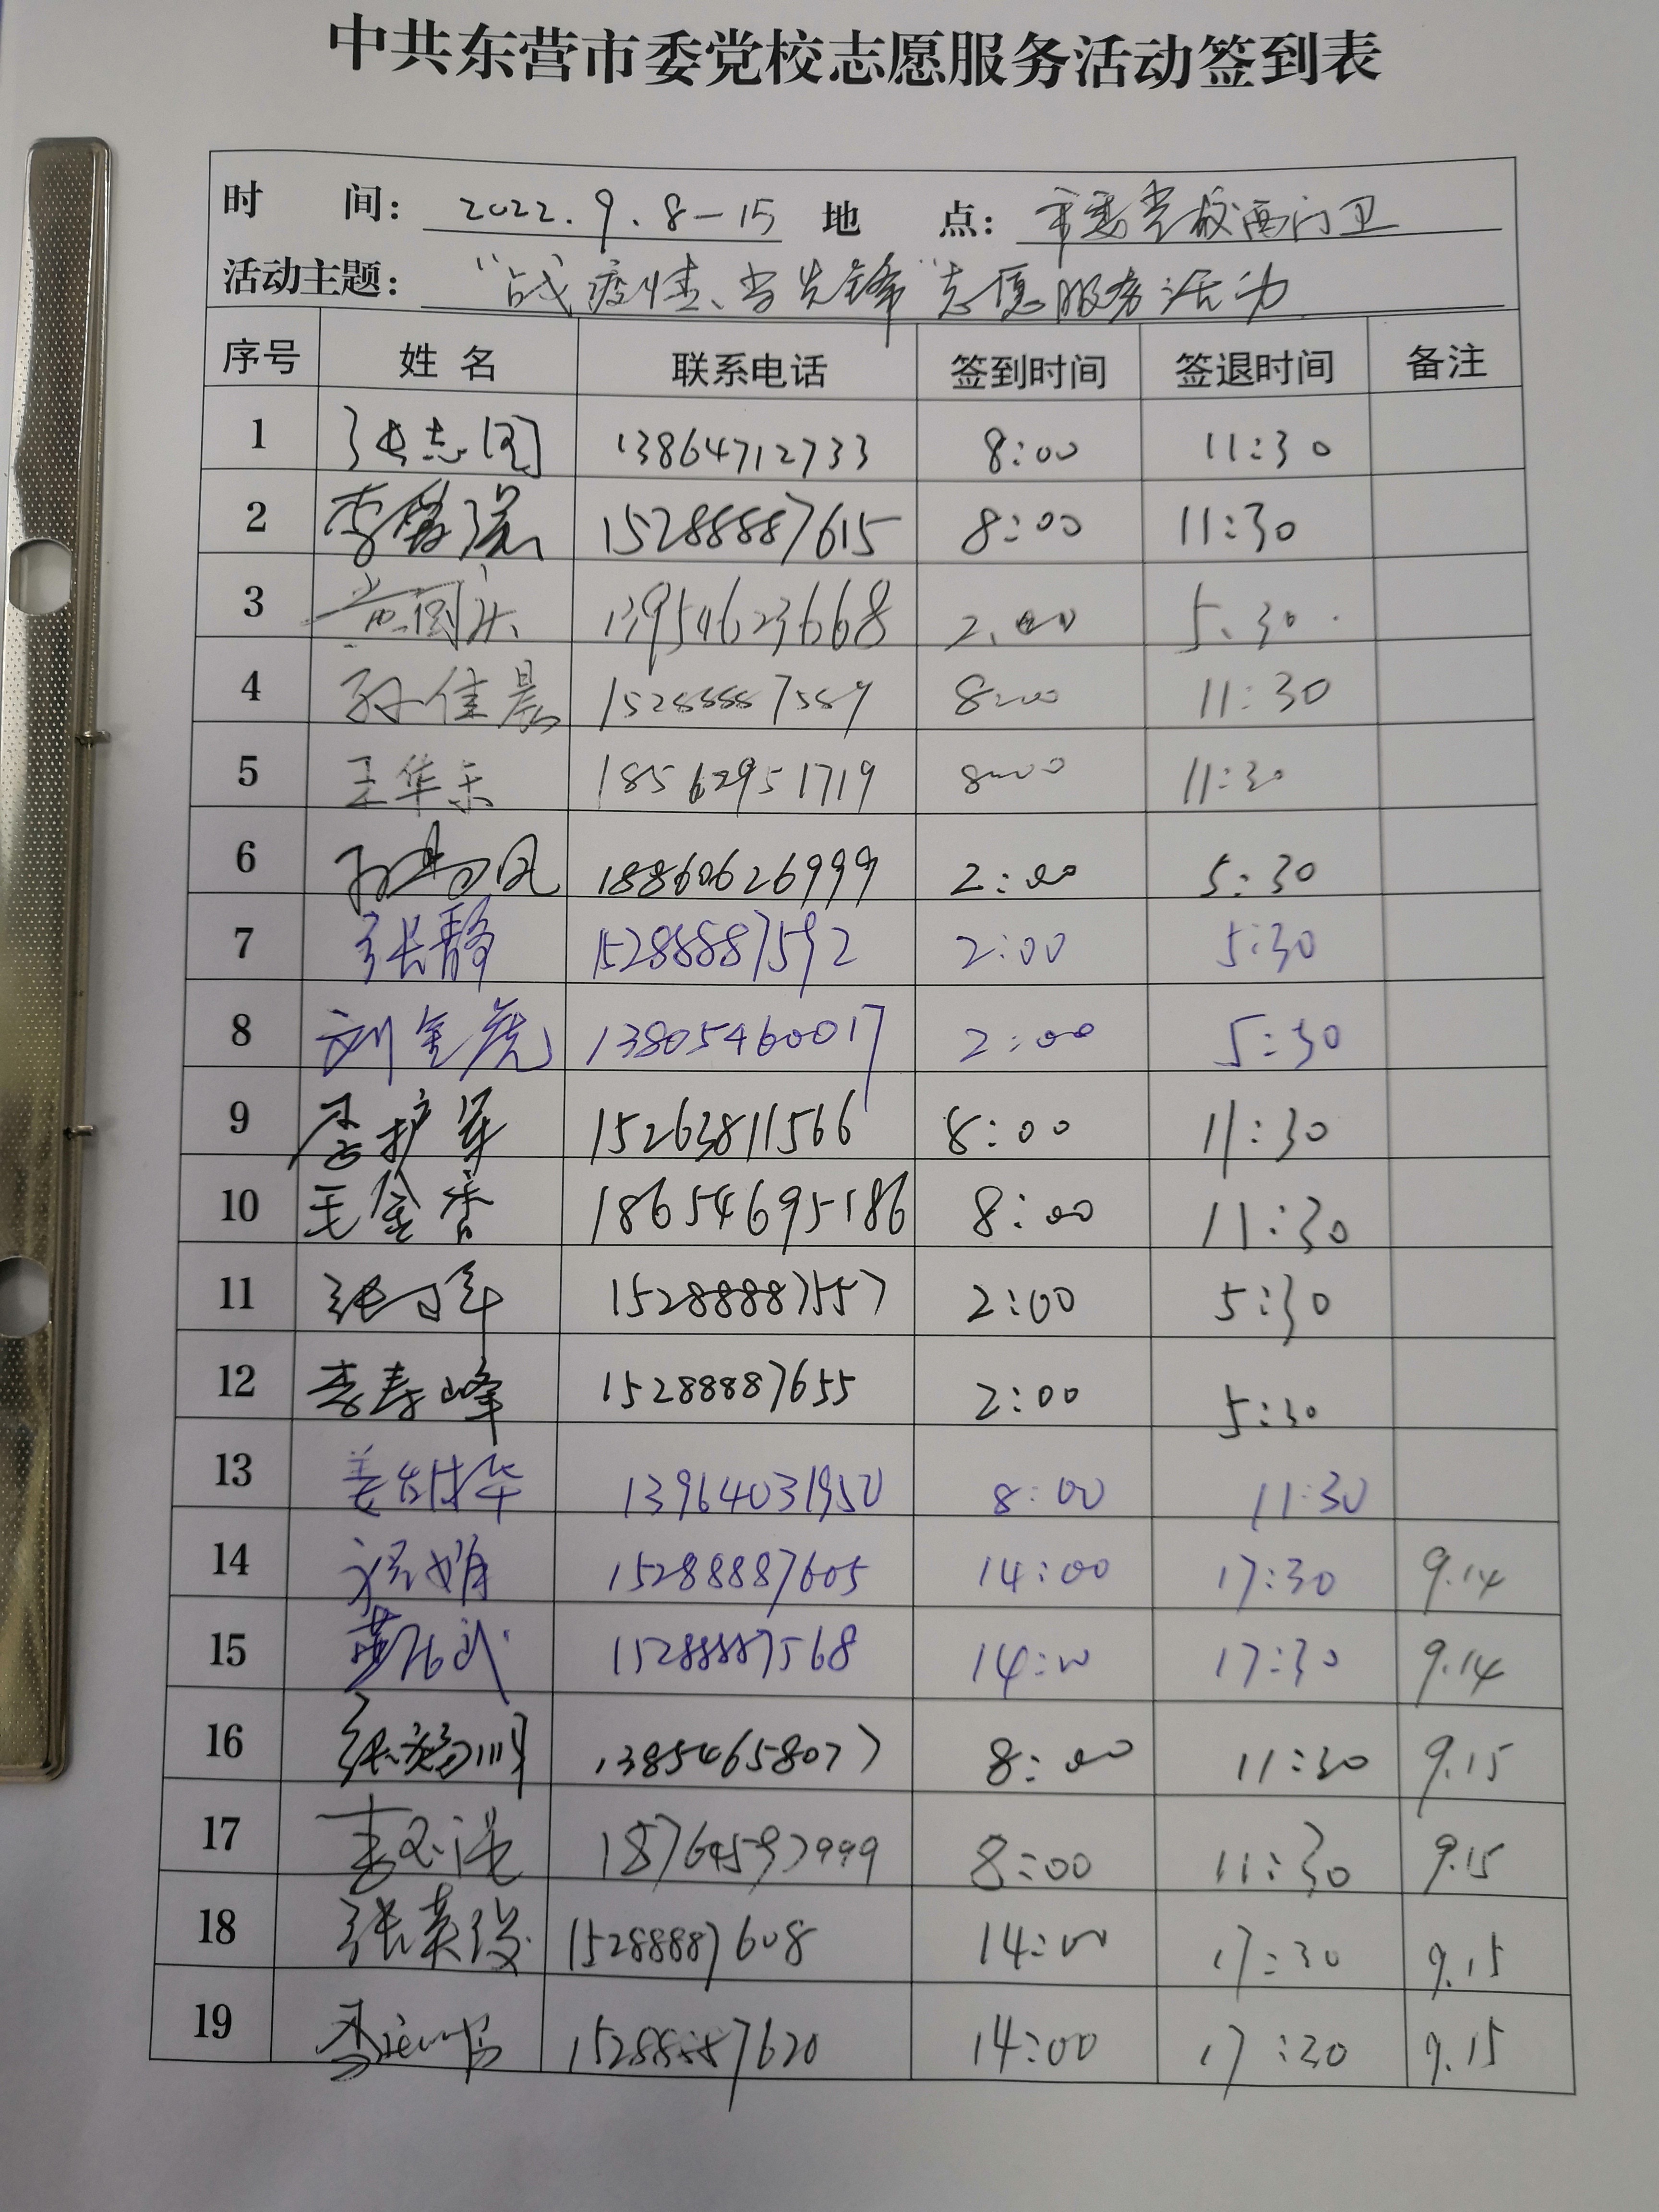 中共东营市委党校志愿服务活动签到表
时 间: 2022.9.8-15 地 点: 市委党校西门卫
活动主题: "战疫情、当先锋"志愿服务活动
序号 姓名 联系电话 签到时间 签退时间 备注
1 张志国 13864712733 8:00 11:30
2 李 15288887615 8:00 11:30
3 13954623668 2:00 5:30
4 孙佳晨 15288887589 8:00 11:30
5 王华东 18562951719 8:00 11:30
6 18860626999 2:00 5:30
7 张静 15288887592 2:00 5:30
8 刘金虎 13805460017 2:00 5:30
9 李护军 15263811566 8:00 11:30
10 王金香 18654695186 8:00 11:30
11 张 军 15288887557 2:00 5:30
12 李寿峰 15288887655 2:00 5:30
13 姜 华 13964031950 8:00 11:30
14 娟 15288887605 14:00 17:30 9.14
15 武 15288887568 14:00 17:30 9.14
16 张 13854658077 8:00 11:30 9.15
17 18764597999 8:00 11:30 9.15
18 张英俊 15288887608 14:00 17:30 9.15
19 李 15288887620 14:00 17:30 9.15